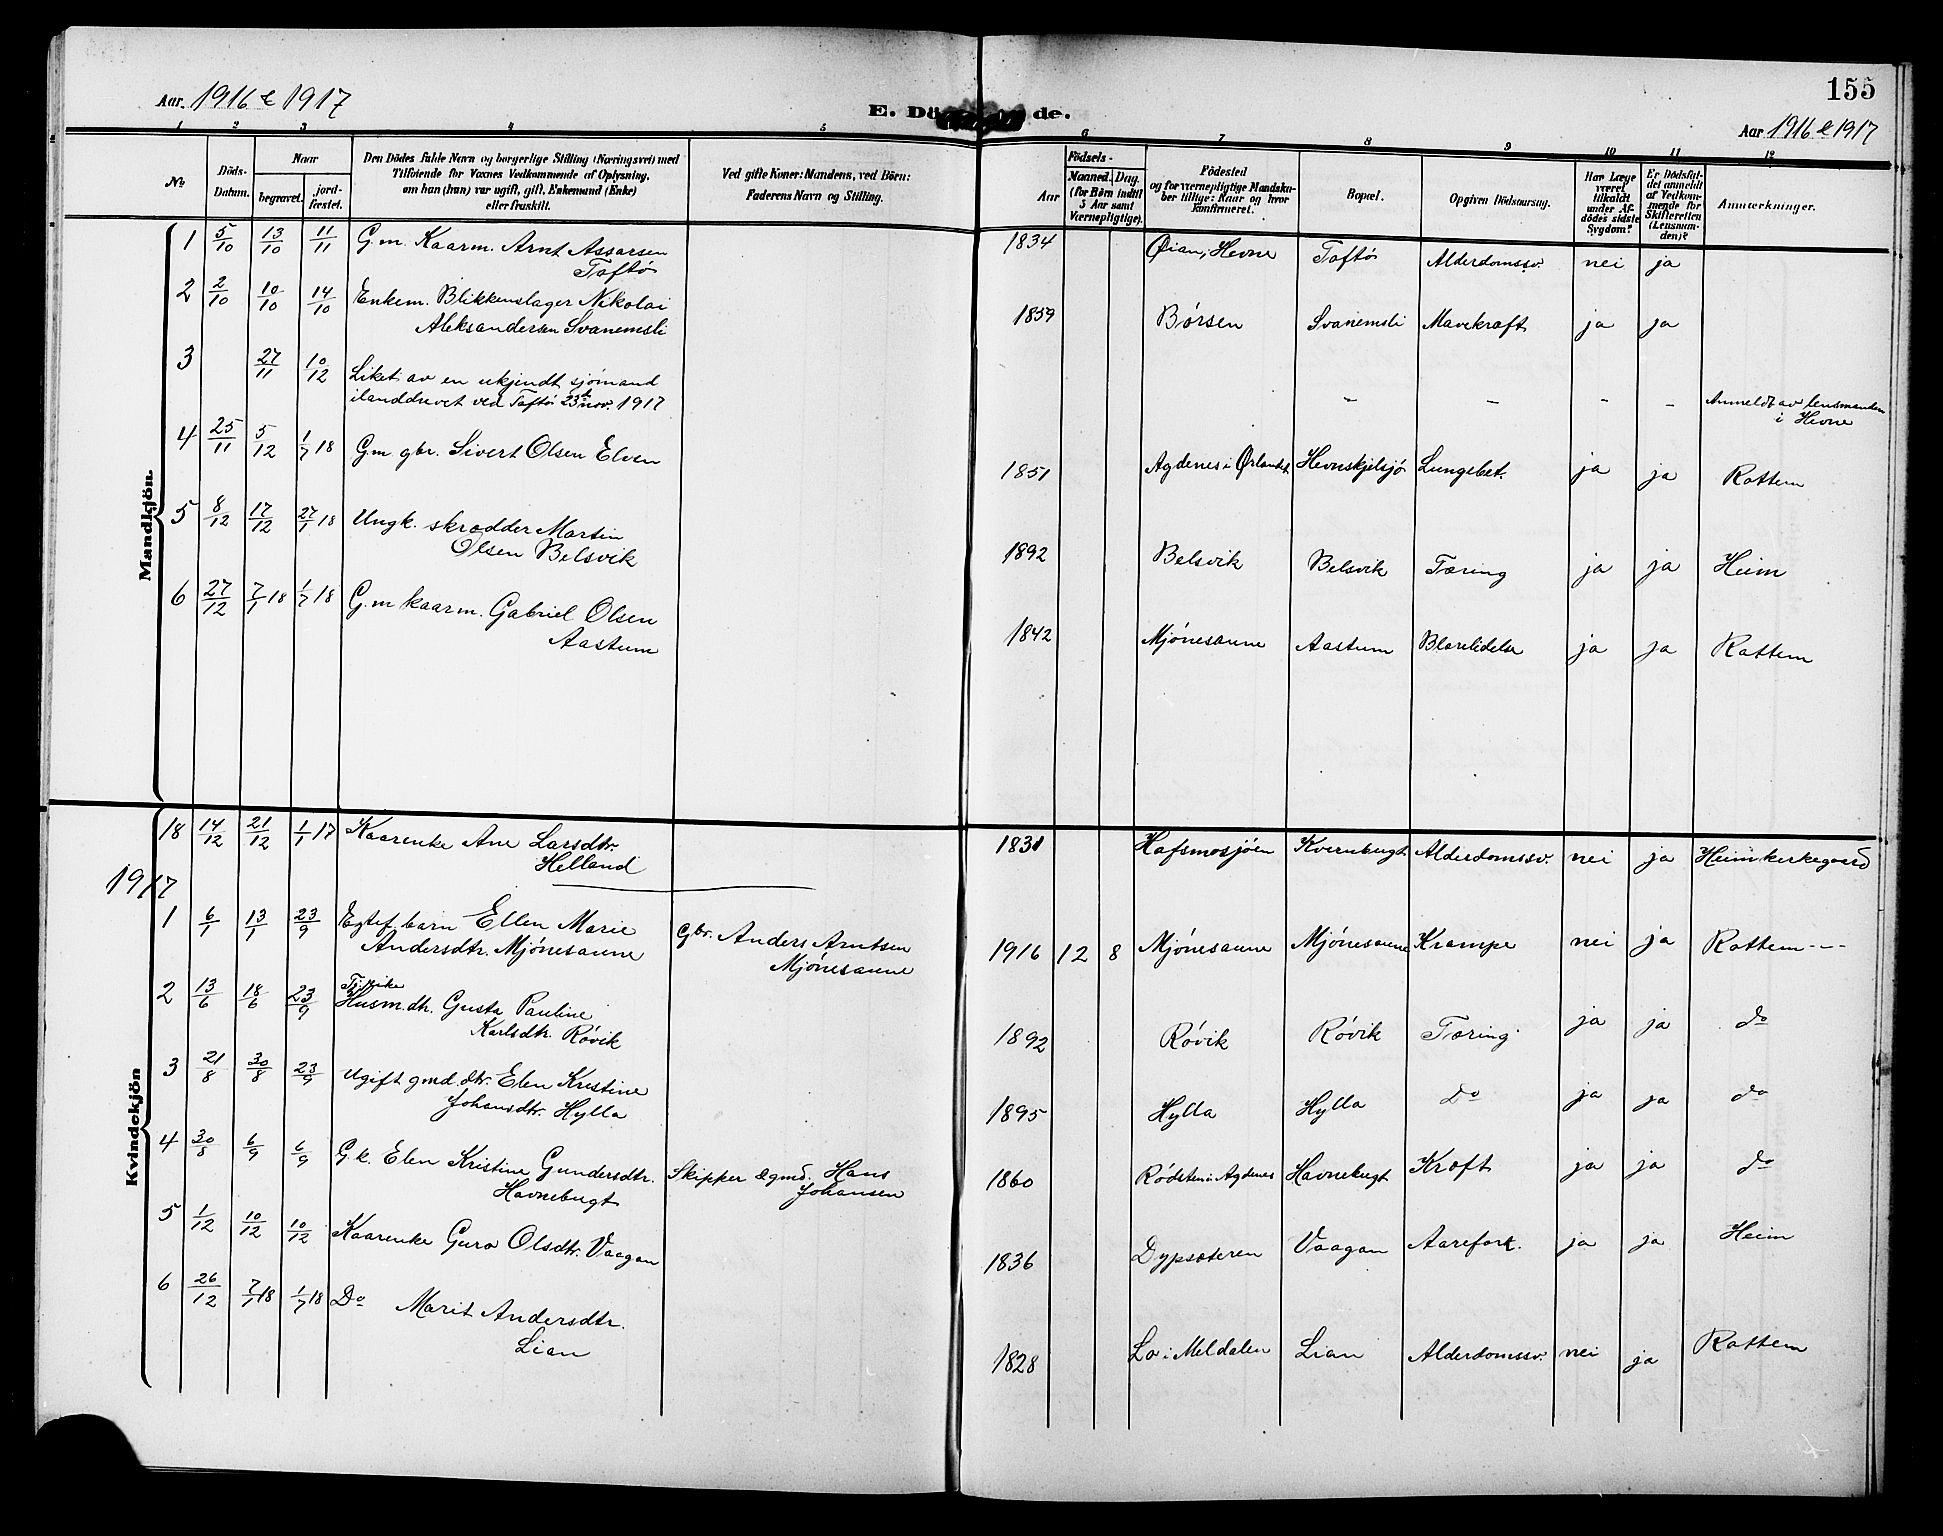 Aar. 1916 & 1917
E. Dö de.
155
Aar 1916 & 1917
1 2 3 4 5 6 7 8 9 10 11 12
No
Döds-
Datum.
Naar
begravet.
jord-
fæstet.
Den Dödes fulde Navn og borgerlige Stilling (Næringsvei) med
Tilföiende for Voxnes Vedkommende af Oplysning,
om han (hun) var ugift, gift, Enkemand (Enke)
eller fraskilt.
Ved gifte Koner: Mandens, ved Börn:
Faderens Navn og Stilling.
Födsels-
Aar
Maaned. Dag.
(for Børn indtil
5 Aar samt
Værnepligtige).
Födested
og for værnepligtige Mandska-
ber tillige: Naar og hvor
konfirmeret.
Bopæl.
Opgiven Dödsaarsag.
Har Læge
været
tilkaldt
under Af-
dödes sidste
Sygdom?
Er Dödsfal-
det anmeldt
af Vedkom-
mende for
Skifteretten
(Lensman-
den)?
Anmærkninger.
Mandkjön.
1 5/10 13/10 11/11 G.m. Kaarm. Arnt Assarsen
Taftø
1834 Øian, Hevne Taftø Alderdomssv. nei ja
2 2/10 10/10 14/10 Enkem. Blikkenslager Nikolai
Aleksandersen Svanemsli
1859 Børsen Svanemsli Mavekræft ja ja
3 27/11 10/12 Liket av en ukjendt sjømand
ilanddrevet ved Taftø 23de nov. 1917
- - - - Anmeldt av lensmanden
i Hevne
4 25/11 5/12 1/7 18 G.m. gbr. Sivert Olsen Elven
1851 Agdenes i Ørlandet Hevnskjelsjø Lungebet. ja ja Rottem
5 8/12 17/12 27/1 18 Ungk. skrædder Martin
Olsen Belsvik
1892 Belsvik Belsvik Tæring ja ja Heim
6 27/12 7/1 18 1/7 18 G.m kaarm. Gabriel Olsen
Aastum
1842 Mjønesaune Aastum Blærelidelse ja ja Rottem
Kvindekjön
18 14/12 21/12 1/1 17 Kaarenke Ane Larsdtr.
Helland
1831 Hafsmosjøen Kvernbugt Alderdomssv. nei ja Heim kirkegaard
1917
1 6/1 13/1 23/9 Egtef. barn Ellen Marie
Andersdtr. Mjønesaune
Gbr. Anders Arntsen
Mjønesaune
1916 12 8 Mjønesaune Mjønesaune Krampe nei ja Rottem ---
2 13/6 18/6 23/9 Husm.dtr. Gusta Pauline
Karlsdtr. Røvik
1892 Røvik Røvik Tæring ja ja do
3 21/8 30/8 23/9 Ugift gmd.dtr. Elen Kristine
Johansdtr. Hylla
1895 Hylla Hylla Do ja ja do
4 30/8 6/9 6/9 G.k. Elen Kristine Gundersdtr.
Havnebugt
Skipper & gmd. Hans
Johansen
1860 Rødsten i Agdenes Havnebugt Kræft ja ja do
5 1/12 10/12 10/12 Kaarenke Guro Olsdtr. Vaagan
1836 Dypsæteren Vaagan Aarefork. ja ja Heim
6 26/12 7/1 18 1/7 18 Do Marit Andersdtr.
Lian
1828 Lo i Meldalen Lian Alderdomssv. nei ja Rottem